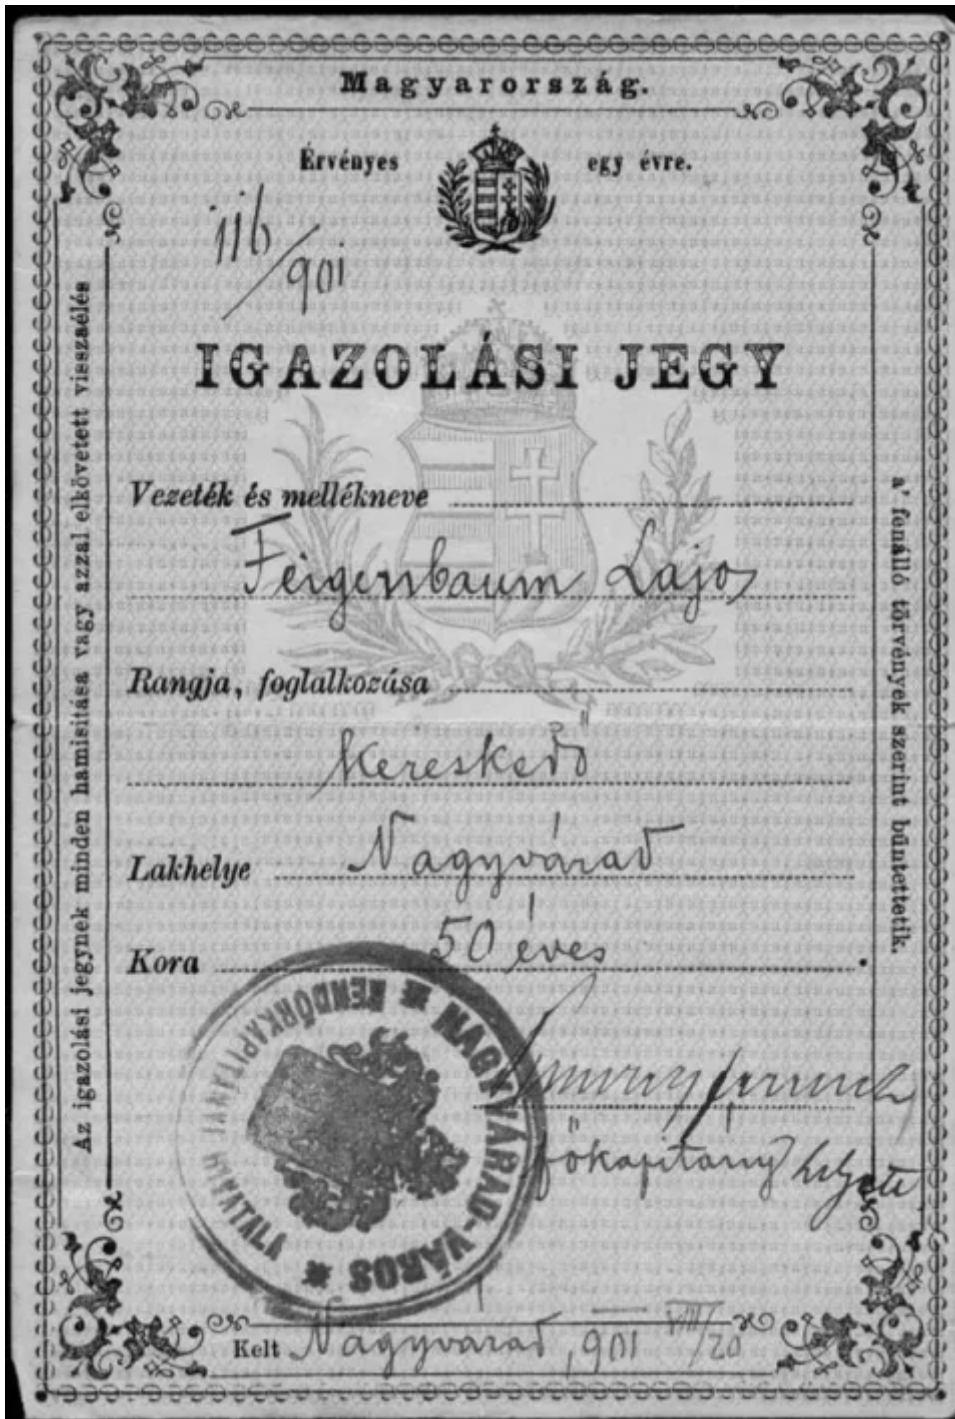 Magyarország.
Érvényes egy évre.
116/901
IGAZOLÁSI JEGY
Vezeték és mellékneve
Feigenbaum Lajos
Rangja, foglalkozása
Kereskedő
Lakhelye Nagyvárad
Kora 50 éves
főkapitány helyett
NAGYVÁRAD-VÁROS * RENDŐRKAPITÁNYI HIVATALA *
Kelt Nagyvárad, 901 VIII/20
Az igazolási jegynek minden hamisitása vagy azzal elkövetett visszaélés
a' fenálló törvények szerint büntettetik.